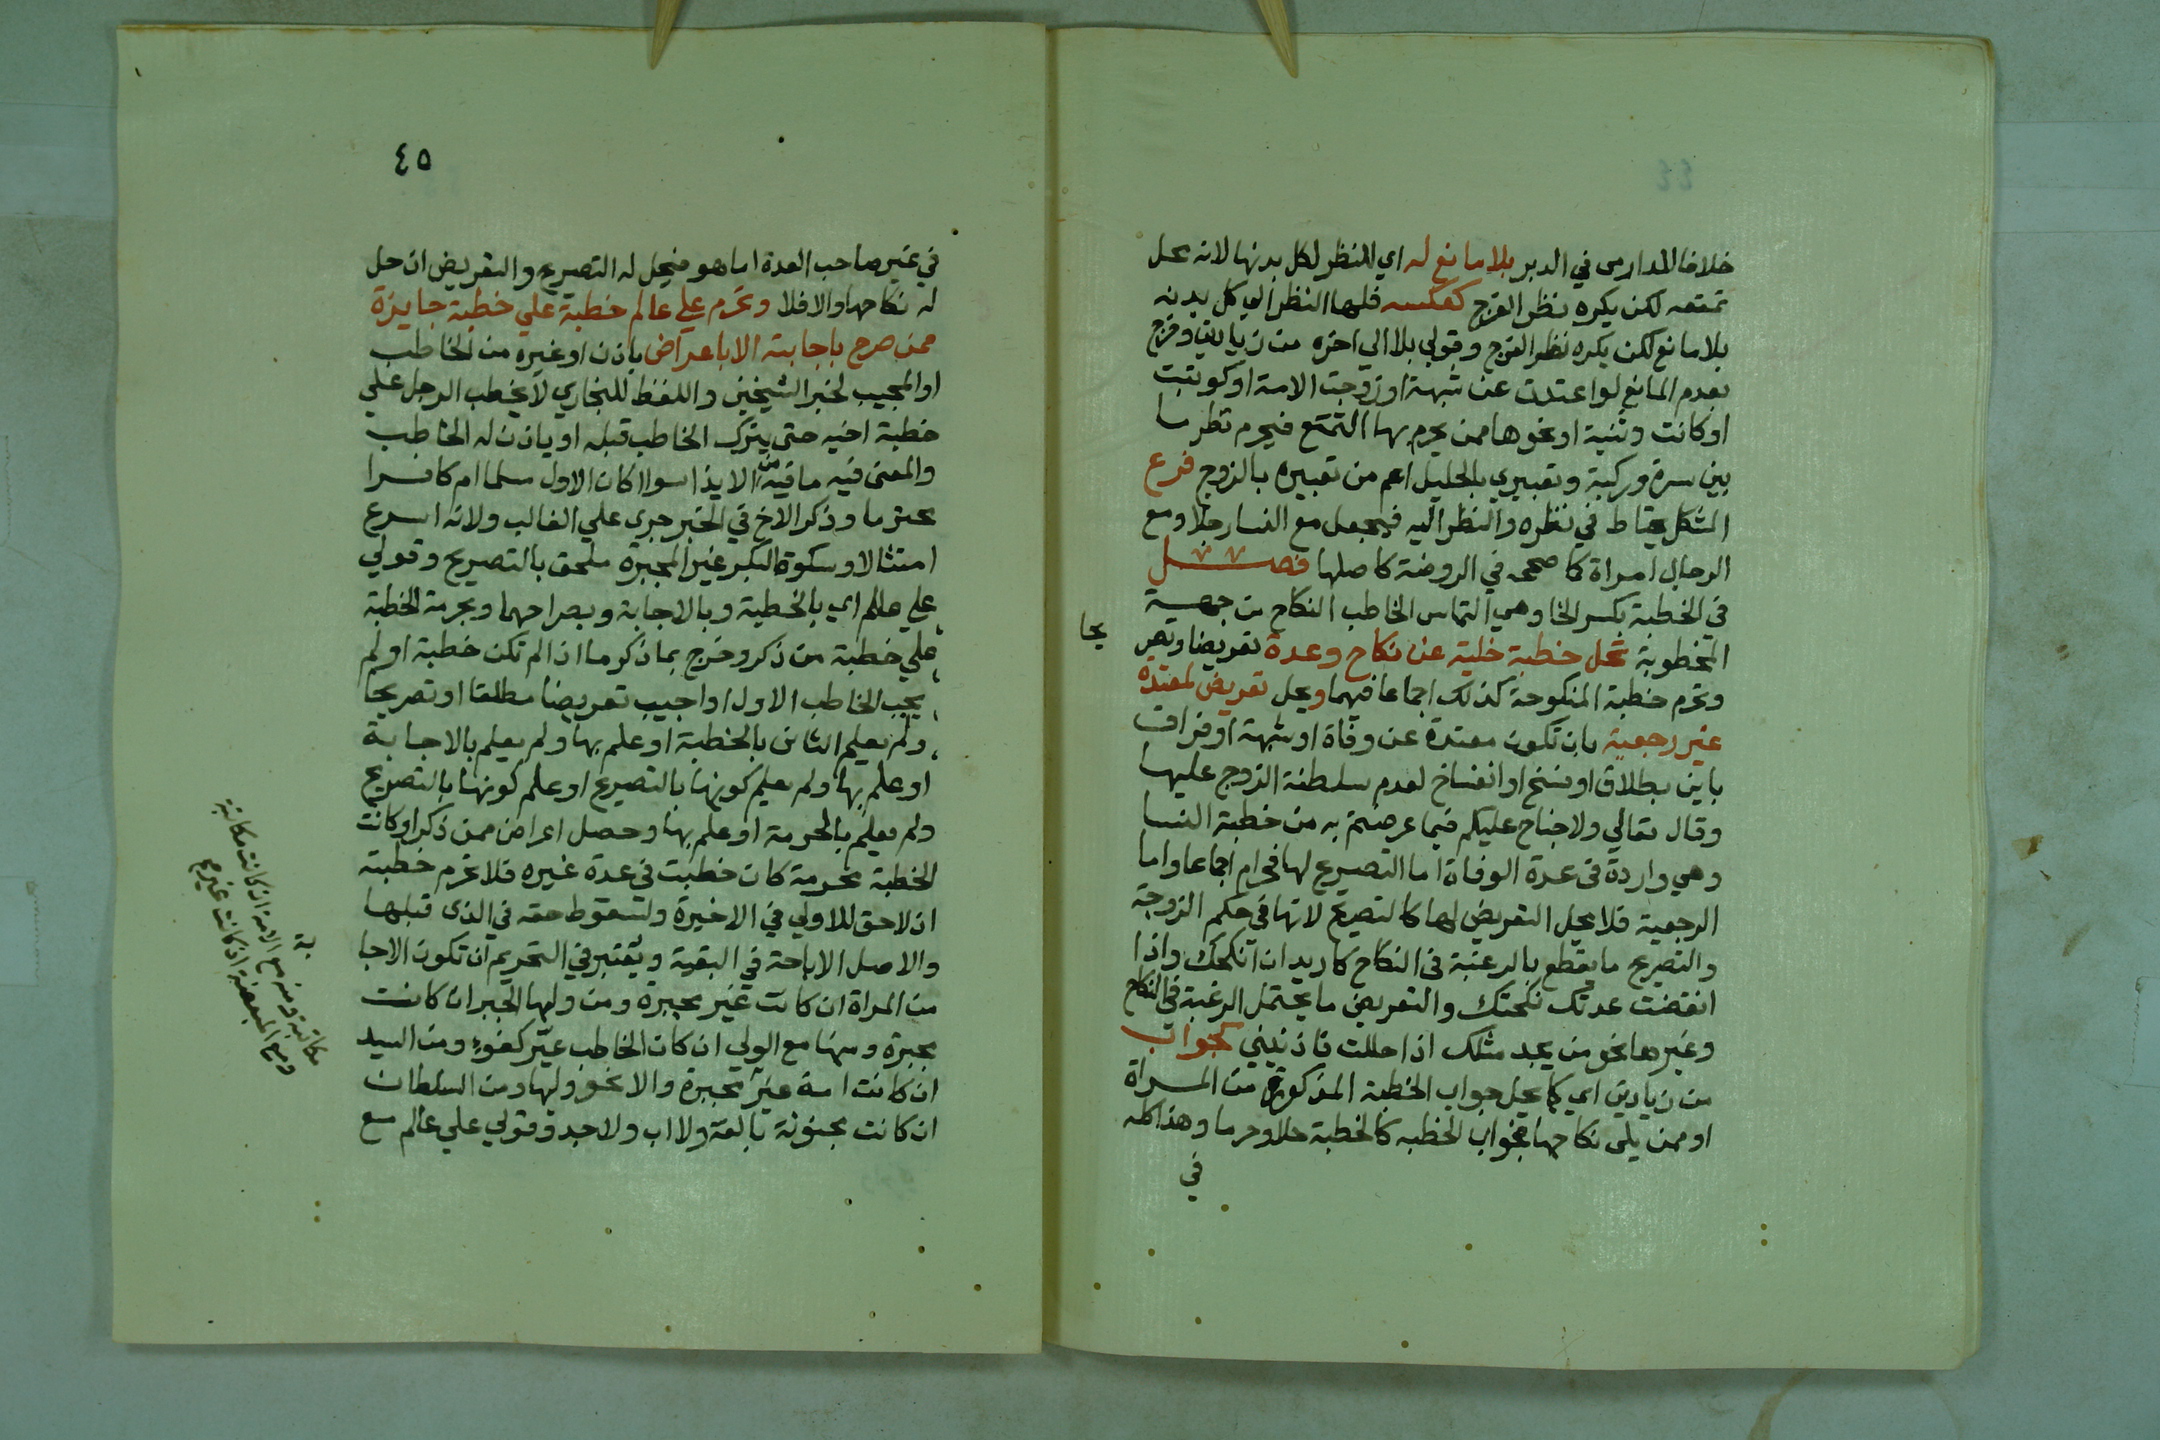 خلافا للدارمى في الدبر بلا مانع له اي للنظر لكل بدنها لانه محل
تمتعه لكن يكره نظر الفرج كعكسه فلها النظر الي كل بدنه
بلا مانع لكن يكره نظر الفرج وقولي بلا الي اخره من زيادتي وخرج
بعدم المانع لو اعتدت عن شبهة او زوجت الامة او كوتبت
او كانت وثنية او نحوها ممن يحرم بها التمتع فيحرم نظر ما
بين سرة وركبة وتعبيري بالحليل اعم من تعبيره بالزوج فرع
المشكل يحتاط في نظره والنظر اليه فيجعل مع النسا رجلا ومع
الرجال امراة كا صححه في الروضة كاصلها فصل
في الخطبة بكسر الخا وهي التماس الخاطب النكاح من جهة
المخطوبة تحل خطبة خلية عن نكاح وعدة تعريضا وتصر
يحا
وتحرم خطبة المنكوحة كذلك اجماعا فيهما ويحل تعريض لمعتدة
غير رجعية بان تكون معتدة عن وفاة او شبهة او فراق
باين بطلاق او فسخ او انفساخ لعدم سلطنة الزوج عليها
وقال تعالي ولا جناح عليكم فيما عرضتم به من خطبة النسا
وهي واردة فى عدة الوفاة اما التصريح لها فحرام اجماعا واما
الرجعية فلا يحل التعريض لها كالتصريح لانها في حكم الزوجة
والتصريح ما يقطع بالرغبة فى النكاح كاريد ان انكحك واذا
انقضت عدتك نكحتك والتعريض ما يحتمل الرغبة في النكاح
وغيرها نحو من يجد مثلك اذا حللت فاذنيني كجواب
من زيادتي اي كما يحل جواب الخطبة المذكورة من المراة
او ممن يلى نكاحها فجواب الخطبه كالخطبة حلا وحرما وهذا كله
في
٤٥
في غير صاحب العدة اما هو فيحل له التصريح والتعريض ان حل
له نكاحها والا فلا وتحرم علي عالم خطبة علي خطبة جايزة
ممن صرح باجابته الا باعراض باذن او غيره من الخاطب
او المجيب لخبر الشيخين واللفظ للبخاري لا يخطب الرجل علي
خطبة اخيه حتى يترك الخاطب قبله او ياذن له الخاطب
والمعنى فيه ما فيه من الايذا سوا اكان الاول مسلما ام كافرا
محترما وذكر الاخ في الخبر جرى علي الغالب ولانه اسرع
امتثالا وسكوت البكر غير المجبرة ملحق بالتصريح وقولي
علي عالم اي بالخطبة وبالاجابة وبصراحتها وبحرمة الخطبة
علي خطبة من ذكر وخرج بما ذكر ما اذا لم تكن خطبة او لم
يجب الخاطب الاول او اجيب تعريضا مطلقا او تصريحا
ولم يعلم الثانى بالخطبة او علم بها ولم يعلم بالاجابة
او علم بها ولم يعلم كونها بالتصريح او علم كونها بالتصريح
ولم يعلم بالحرمة او علم بها وحصل اعراض ممن ذكر او كانت
الخطبة محرمة كان خطبت فى عدة غيره فلا تحرم خطبته
اذ لا حق للاولي في الاخيرة ولسقوط حقه في الذى قبلها
والاصل الاباحة في البقية ويعتبر في التحريم ان تكون الاجا
بة
من المراة ان كانت غير مجبرة ومن وليها المجبر ان كانت
مجبرة ومنها مع الولي ان كان الخاطب غير كفوء ومن السيد
ان كانت امة غير مكاتبة ومنه مع الامة ان كانت مكاتبة
ومع المبعضة ان كانت غير
مجبرة والا نحو وليها ومن السلطان
ان كانت مجنونة بالغة ولا اب ولا جد وقولي علي عالم مع